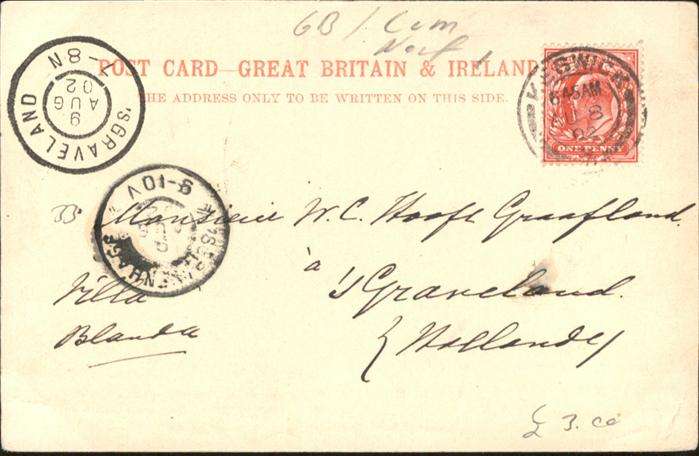 GB / Cum
POST CARD—GREAT BRITAIN & IRELAND
THE ADDRESS ONLY TO BE WRITTEN ON THIS SIDE.
'SGRAVELAND
8N
9
AUG
02
KESWICK
6.45AM
8
02
ONE PENNY
'SGRAVENHAGE
9-10V
Monsieur W. C. Hooft Graafland.
à
's Graveland.
Villa
Blanda
(Hollande)
£ 3.00